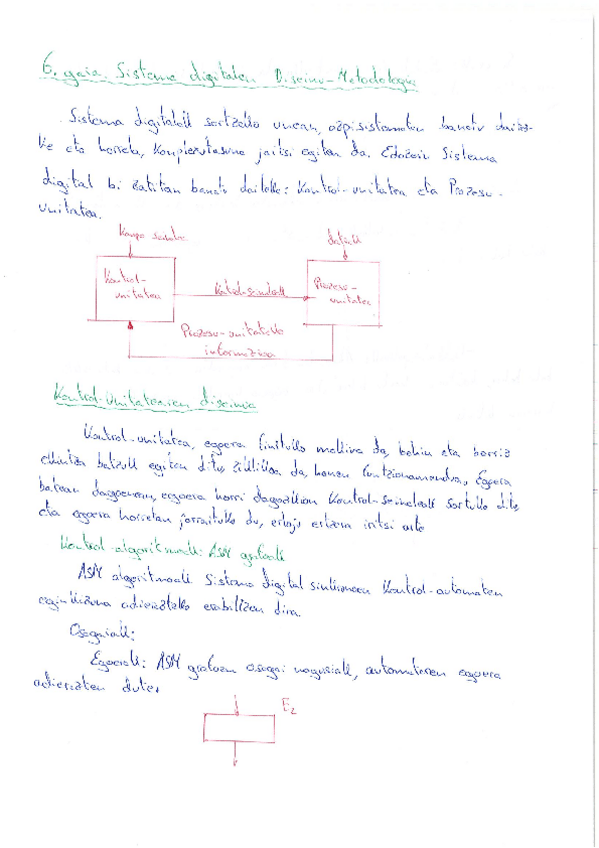 6. gaia. Sistema digitalen Diseinu-Metodologia
Sistema digitalak sortzeko unean, azpisistematan banatu daitez-
ke eta horrela, konplexutasuna jaitsi egiten da. Edozein Sistema
digital bi zatitan banatu daiteke: Kontrol-unitatea eta Prozesu-
unitatea.
Kanpo
datuak
Kontrol-
unitatea
Kontrol-seinaleak
Prozesu-
unitatea
Prozesu-unitateko
informazioa
Kontrol-Unitatearen diseinua
Kontrol-unitatea, egoera finituko makina da, behin eta berriz
ekintza batzuk egiten ditu, ziklikoa da, honen funtzionamendua. Egoera
batean dagoenean, egoera horri dagozkion kontrol-seinaleak sortuko ditu
eta egoera horretan jarraituko du, erloju ertzera iritsi arte
Kontrol-algoritmoak: ASM grafoak
ASM algoritmoak Sistema digital sinkronoen kontrol-automaten
egin-kizuna adierazteko erabiltzen dira.
Osagaiak:
Egoerak: ASM grafoen osagai nagusiak, automataren egoera
adierazten dute.
E₂